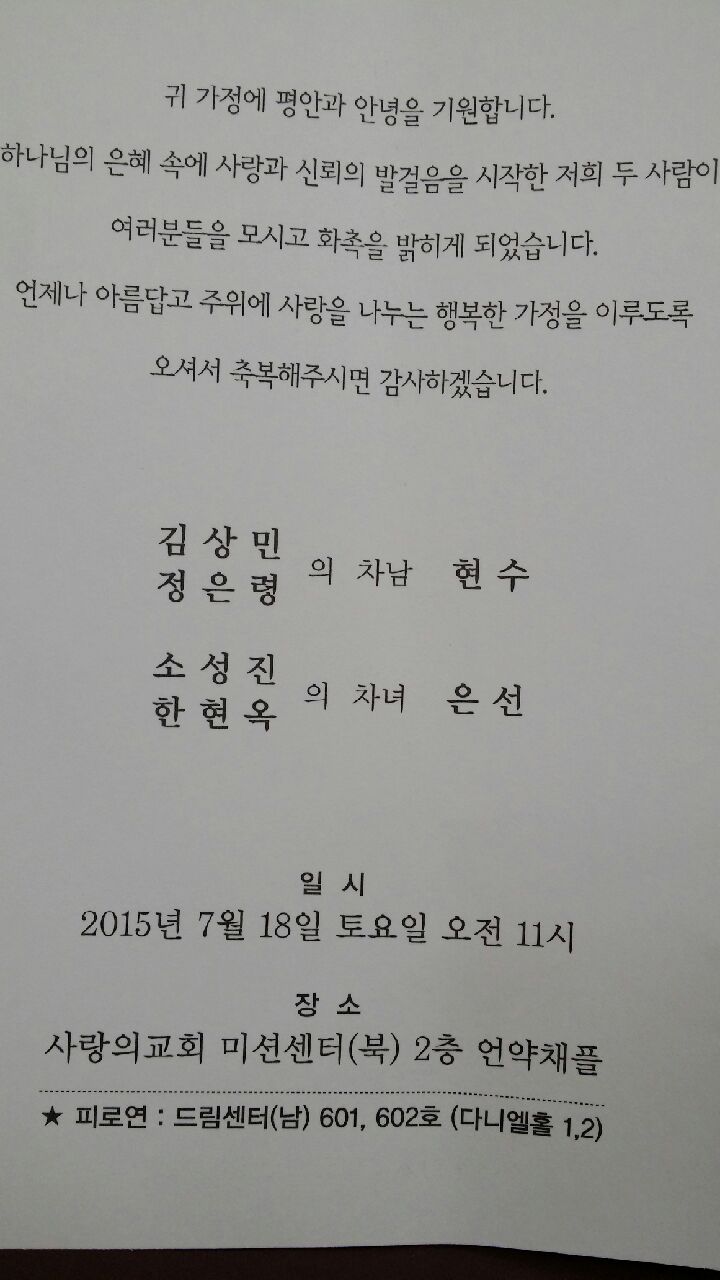 귀 가정에 평안과 안녕을 기원합니다.
하나님의 은혜 속에 사랑과 신뢰의 발걸음을 시작한 저희 두 사람이
여러분들을 모시고 화촉을 밝히게 되었습니다.
언제나 아름답고 주위에 사랑을 나누는 행복한 가정을 이루도록
오셔서 축복해주시면 감사하겠습니다.
김상민
정은령 의 차남 현수
소성진
한현옥 의 차녀 은선
일 시
2015년 7월 18일 토요일 오전 11시
장 소
사랑의교회 미션센터(북) 2층 언약채플
★ 피로연 : 드림센터(남) 601, 602호 (다니엘홀 1,2)